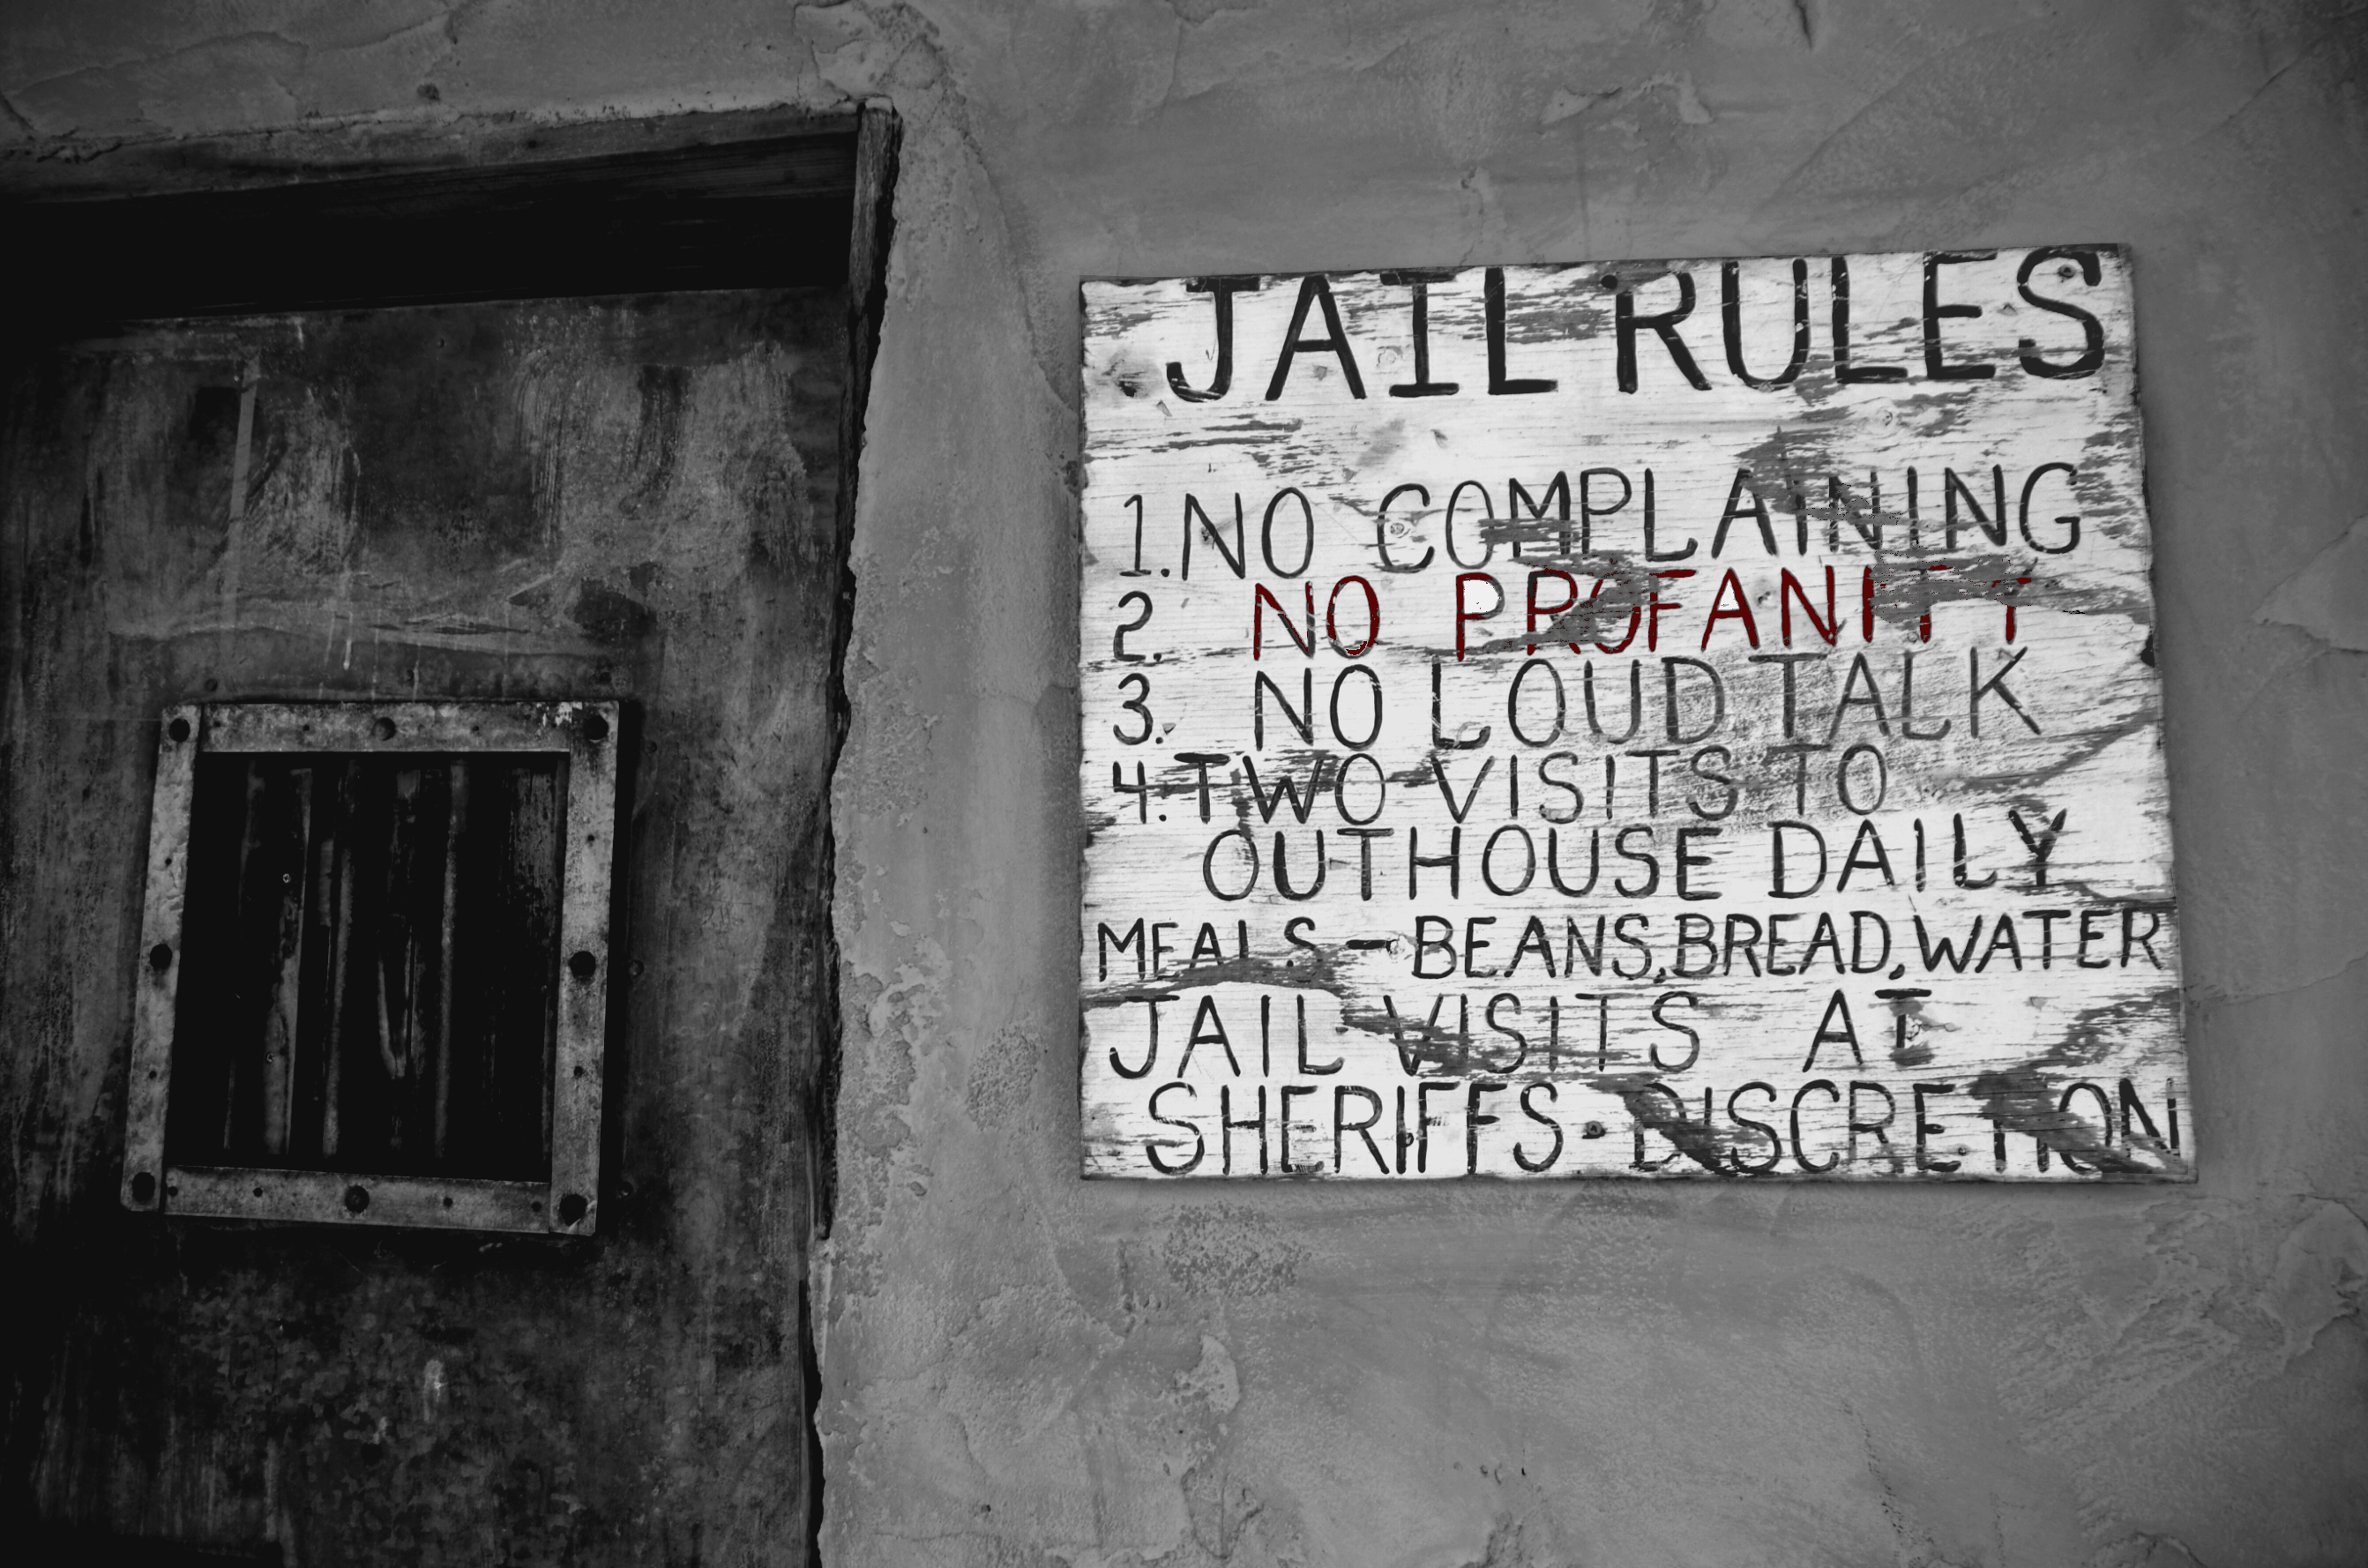 JAIL RULES
1. NO COMPLAINING
2. NO PROFANITY
3. NO LOUD TALK
4. TWO VISITS TO
OUTHOUSE DAILY
MEALS - BEANS, BREAD, WATER
JAIL VISITS AT
SHERIFFS - DISCRETION